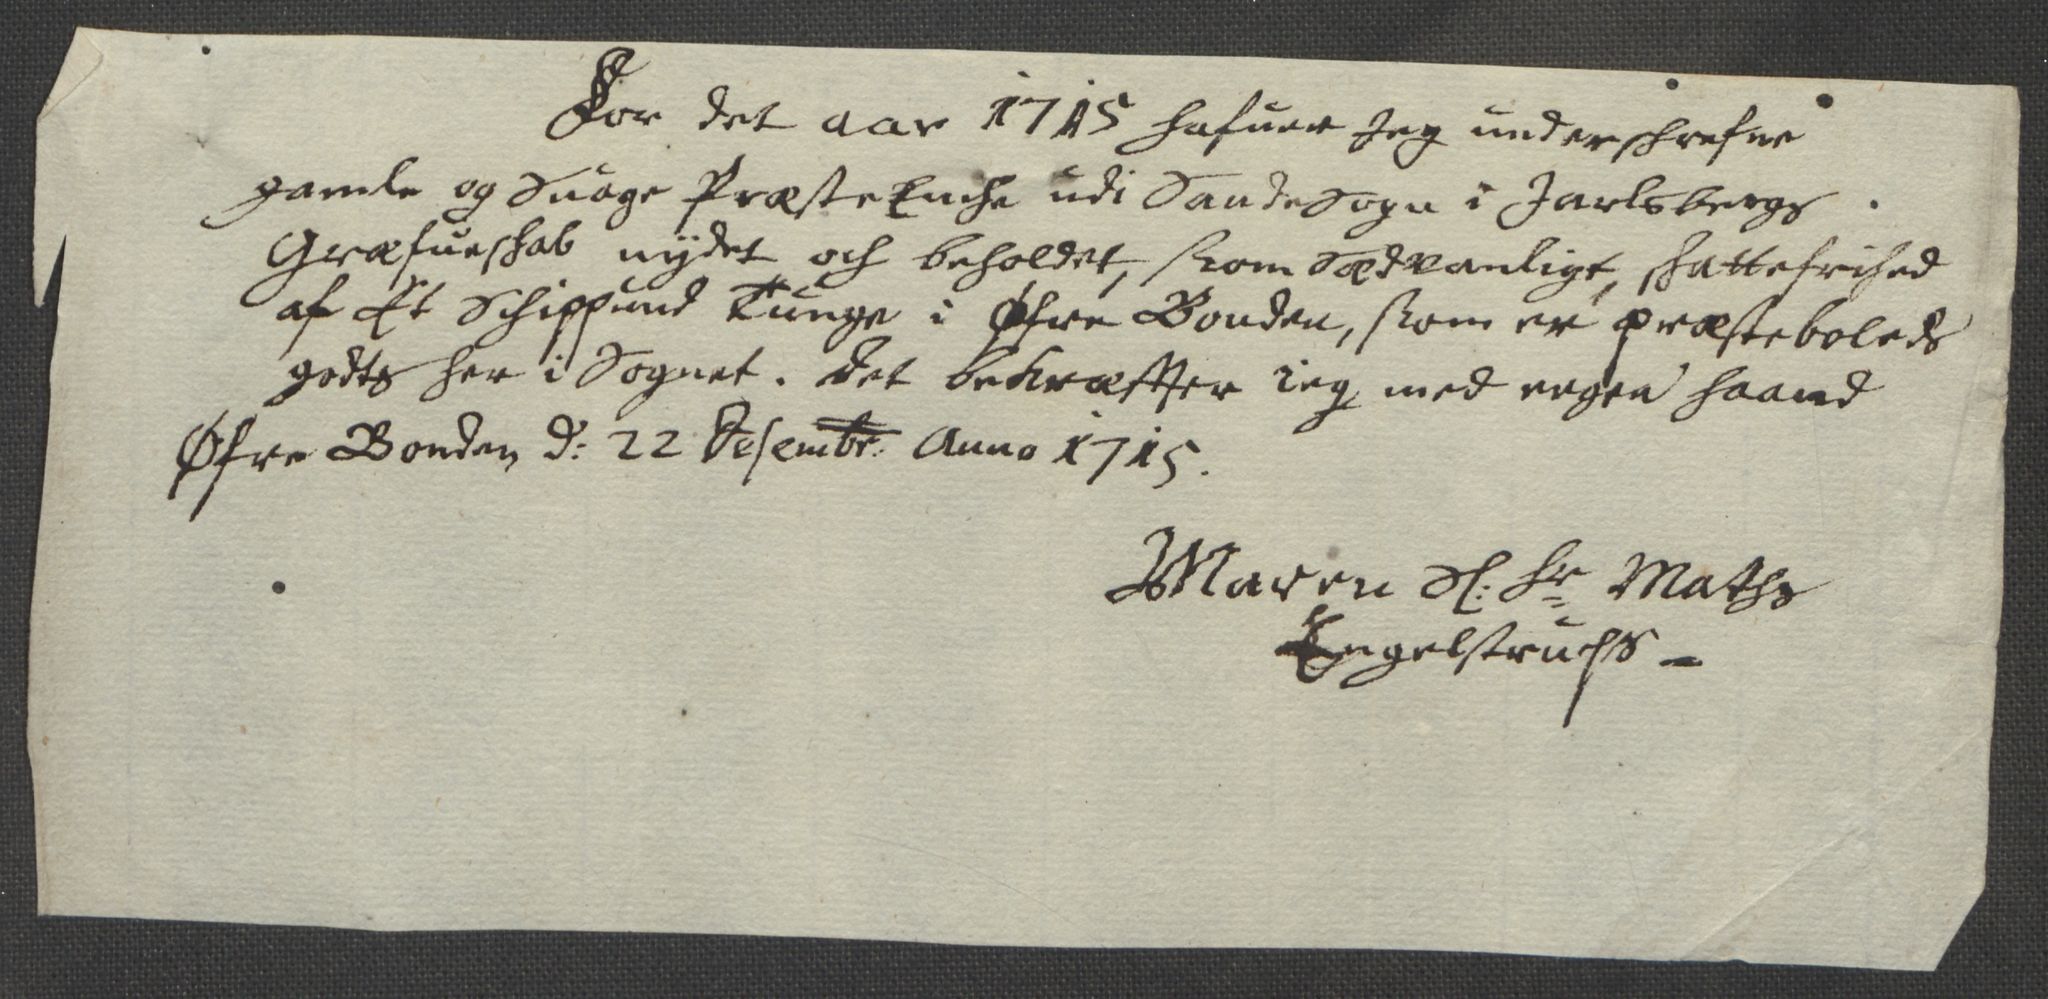 For det aar 1715 hafuer Jeg underschrefne
gamle og Suage Præste Enche udi Sande Sogn i Jarlsbergs
Græfueschab nÿdet och beholdet, som Sædvanligt, schattefrihed
af Et Schippund Tunge i Øfre Bonden, som er præsteboleds
godts her i Sognet. Det bekræffter ieg med eegen haand
Øfre Bonden d: 22 Desembr: Anno 1715.
Maren Sl: Hr Maths
Engelstruchs